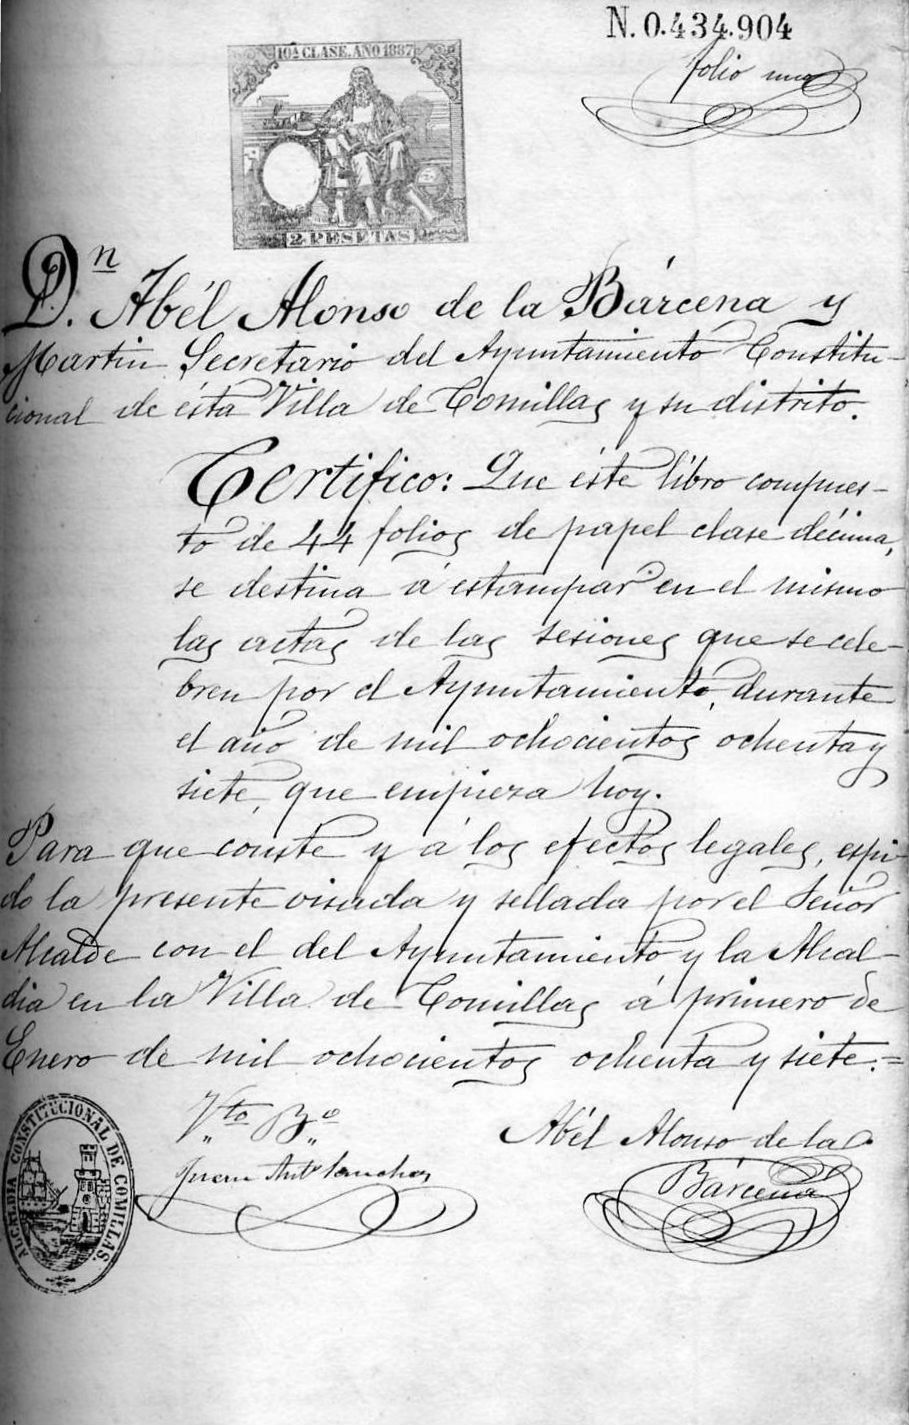 N. 0.434.904
folio uno
10ª CLASE. AÑO 1887
2 PESETAS
Dn. Abél Alonso de la Bárcena y
Martin Secretario del Ayuntamiento Constitu-
cional de ésta Villa de Comillas y su distrito.
Certifico: Que éste libro compues-
to de 44 folios de papel clase décima,
se destina á estampar en el mismo
las actas de las sesiones que se cele-
bren por el Ayuntamiento, durante
el año de mil ochocientos ochenta y
siete, que empieza hoy.
Para que conste y á los efectos legales, espi-
do la presente visada y sellada por el Señor
Alcalde con el del Ayuntamiento y la Alcal-
dia en la Villa de Comillas á primero de
Enero de mil ochocientos ochenta y siete.=
Vto Bo
Abél Alonso de la
Bárcena
Juan Anto Sanchez
ALCALDIA CONSTITUCIONAL DE COMILLAS.